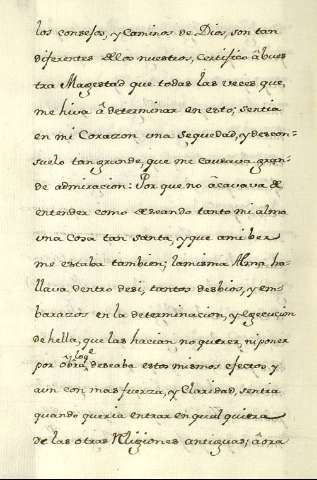 los consejos, y Caminos de Dios, son tan
diferentes de los nuestros, Certifico â vues
tra Magestad que todas las veces que,
me hiva â determinar en esto; sentia
en mi Corazon una sequedad, y descon-
suelo tan grande, que me causava gran-
de admiracion: Por que no âcavava de
entender como deseando tanto mi alma
una Cosa tan santa, y que a mi ber
me estaba tambien; la misma Alma ha-
llava dentro de si, tantos desbios, y em-
barazos en la determinacion, y egecucion
de hella, que las hacian no querer, ni poner
por obra, y loq.e deseaba estos mismos efectos y
aun con mas fuerza, y Claridad, sentia
quando queria entrar en qual quiera
de las otras Religiones antiguas; âora